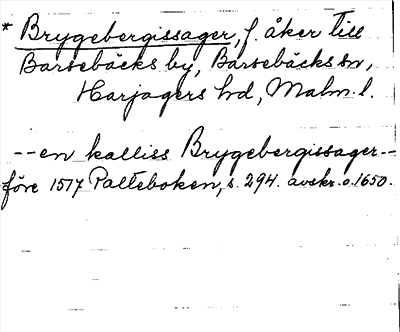 * Brygebergissager, f. åker till
Barsebäcks by, Barsebäcks sn,
Harjagers hd, Malm. l.
-- en kalliss Brygebergissager --
före 1517 Palteboken, s. 294. avskr. o. 1650.